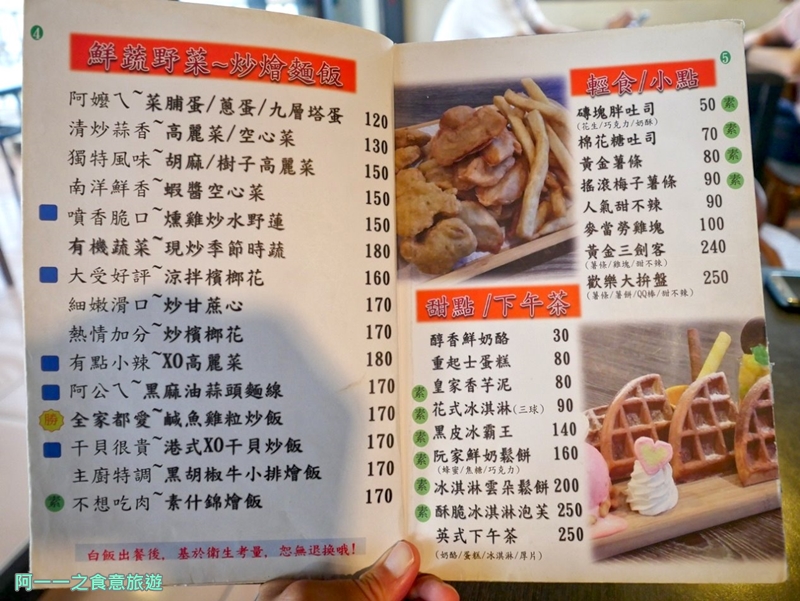 4
鮮蔬野菜~炒燴麵飯
阿嬤ㄟ~菜脯蛋/蔥蛋/九層塔蛋 120
清炒蒜香~高麗菜/空心菜 130
獨特風味~胡麻/樹子高麗菜 150
南洋鮮香~蝦醬空心菜 150
噴香脆口~燻雞炒水野蓮 150
有機蔬菜~現炒季節時蔬 180
大受好評~涼拌檳榔花 160
細嫩滑口~炒甘蔗心 170
熱情加分~炒檳榔花 170
有點小辣~XO高麗菜 180
阿公ㄟ~黑麻油蒜頭麵線 170
全家都愛~鹹魚雞粒炒飯 170
干貝很貴~港式XO干貝炒飯 170
主廚特調~黑胡椒牛小排燴飯 170
素 不想吃肉~素什錦燴飯 170
白飯出餐後，基於衛生考量，恕無退換哦!
5
輕食/小點
磚塊胖吐司 50 素
(花生/巧克力/奶酥)
棉花糖吐司 70 素
黃金薯條 80 素
搖滾梅子薯條 90 素
人氣甜不辣 90
麥當勞雞塊 100
黃金三劍客 240
(薯條/雞塊/甜不辣)
歡樂大拚盤 250
(薯條/薯餅/QQ棒/甜不辣)
甜點/下午茶
醇香鮮奶酪 30
重起士蛋糕 80
素 皇家香芋泥 80
素 花式冰淇淋(三球) 90
素 黑皮冰霸王 140
素 阮家鮮奶鬆餅 160
(蜂蜜/焦糖/巧克力)
素 冰淇淋雲朵鬆餅 200
素 酥脆冰淇淋泡芙 250
英式下午茶 250
(奶酪/蛋糕/冰淇淋/厚片)
阿一一之食意旅遊